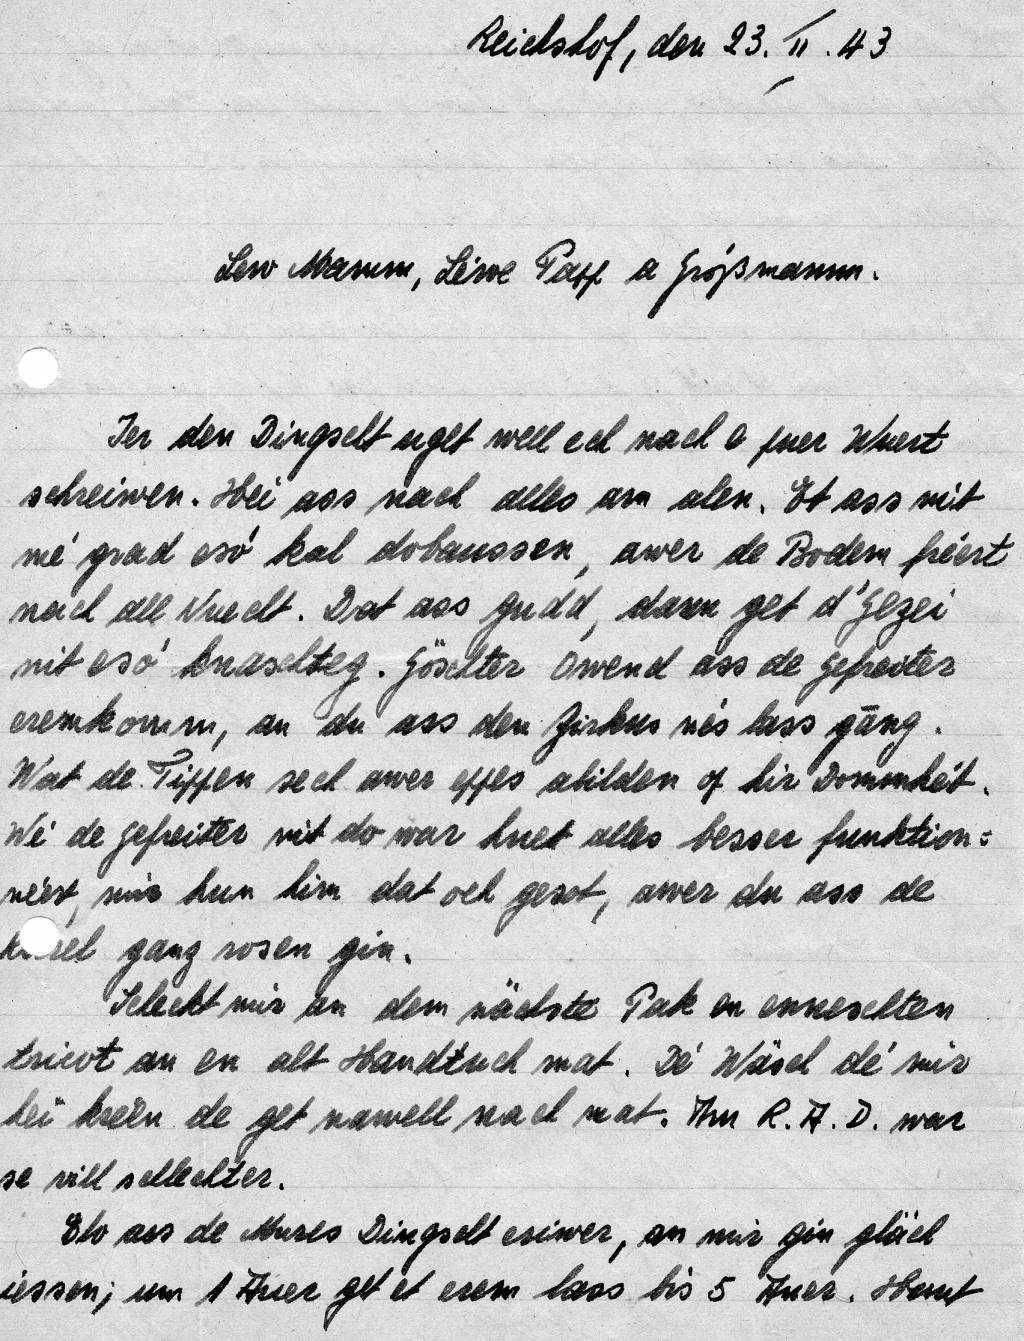 Reichshof, den 23. II. 43
Lew Mamm, Léiwe Papp a Gróßmamm.
Ier den Dingscht uget well ech nach e puer Wuert
schreiwen. Hei ass nach alles am alen. Et ass nit
mé grad esó kal dobaussen, awer de Bodem fréert
nach all Nuecht. Dat ass gudd, dann get d'Gezei
nit esó knaschteg. Göschter Owend ass de Gefreiter
eremkomm, an du ass den Zirkus nés lass gāng.
Wat de Tippen sech awer eppes abilden op hir Dommhét.
Wé de Gefreiter nit do war huet alles besser funktion=
néert, mir hun him dat och gesot, awer du ass de
ganz rosen gin.
Scheckt mir an dem nächste Pak en enneschten
tricot an en alt Handtuch mat. Dé Wäsch dé mir
hei kréien de get nawell nach mat. Am R.A.D. war
se vill schlechter.
Elo ass de Mures Dingscht eriwer, an mir gin gläich
iessen; um 1 Auer get et erem lass bis 5 Auer. Haut